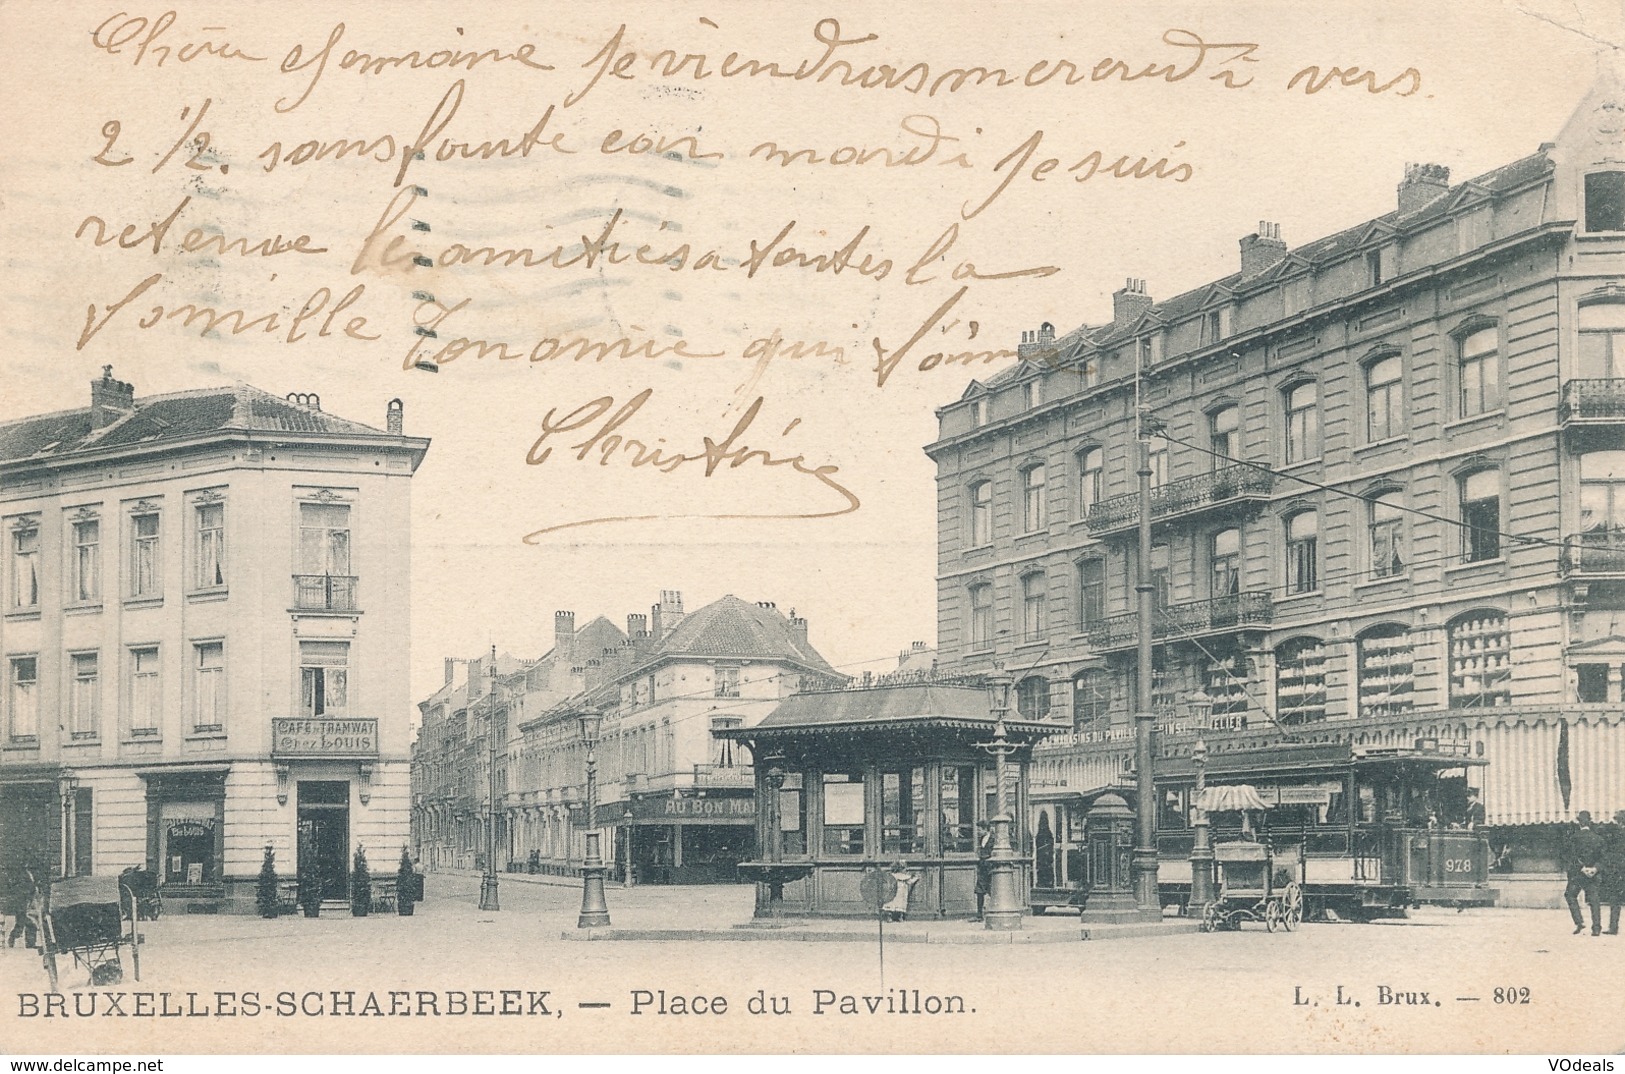 Chère Jermaine je viendras mercredi vers
2 1/2. sans faute car mardi je suis
retenue les amitiés a toutes la
famille Tonamie qui t'aime
Christine
CAFÉ DU TRAMWAY
Chez LOUIS
AU BON MA
MAGASINS DU PAVILL
978
BRUXELLES-SCHAERBEEK, — Place du Pavillon.
L. L. Brux. — 802
www.delcampe.net
VOdeals